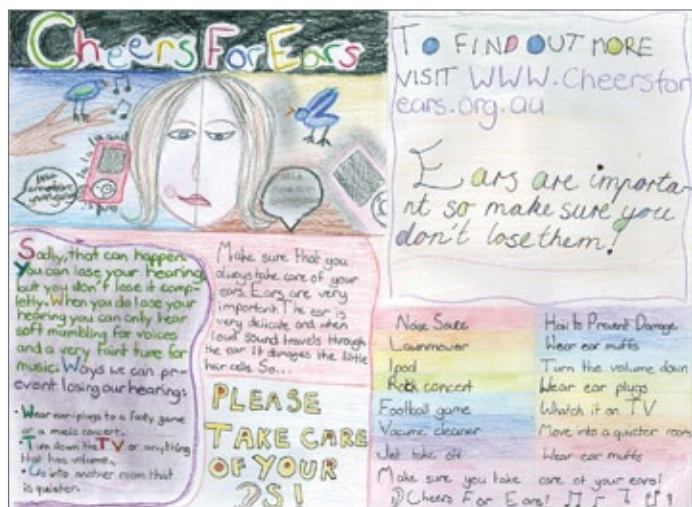 Cheers For Ears
TO FIND OUT MORE
VISIT WWW.Cheersfor
ears.org.au
Ears are importa
nt so make sure you
don't lose them!
Sadly, that can happen.
You can lose your hearing
but you don't lose it comp-
letly. When you do lose your
hearing you can only hear
soft mumbling for voices
and a very faint tune for
music. Ways we can pr-
event losing our hearing:
• Wear ear-plugs to a footy game
or a music concert.
• Turn down the TV or anything
that has volume.
• Go into another room that
is quieter.
Make sure that you
always take care of your
ears. Ears are very
important. The ear is
very delicate and when
loud sound travels through
the ear it damages the little
hair cells. So...
PLEASE
TAKE CARE
OF YOUR
S!
Noise Source How to Prevent Damage
Lawnmower Wear ear muffs
Ipod Turn the volume down
Rock concert Wear ear plugs
Football game Whatch it on TV
Vacume cleaner Move into a quieter room
Jet take off Wear ear muffs
Make sure you take care of your ears!
Cheers For Ears!